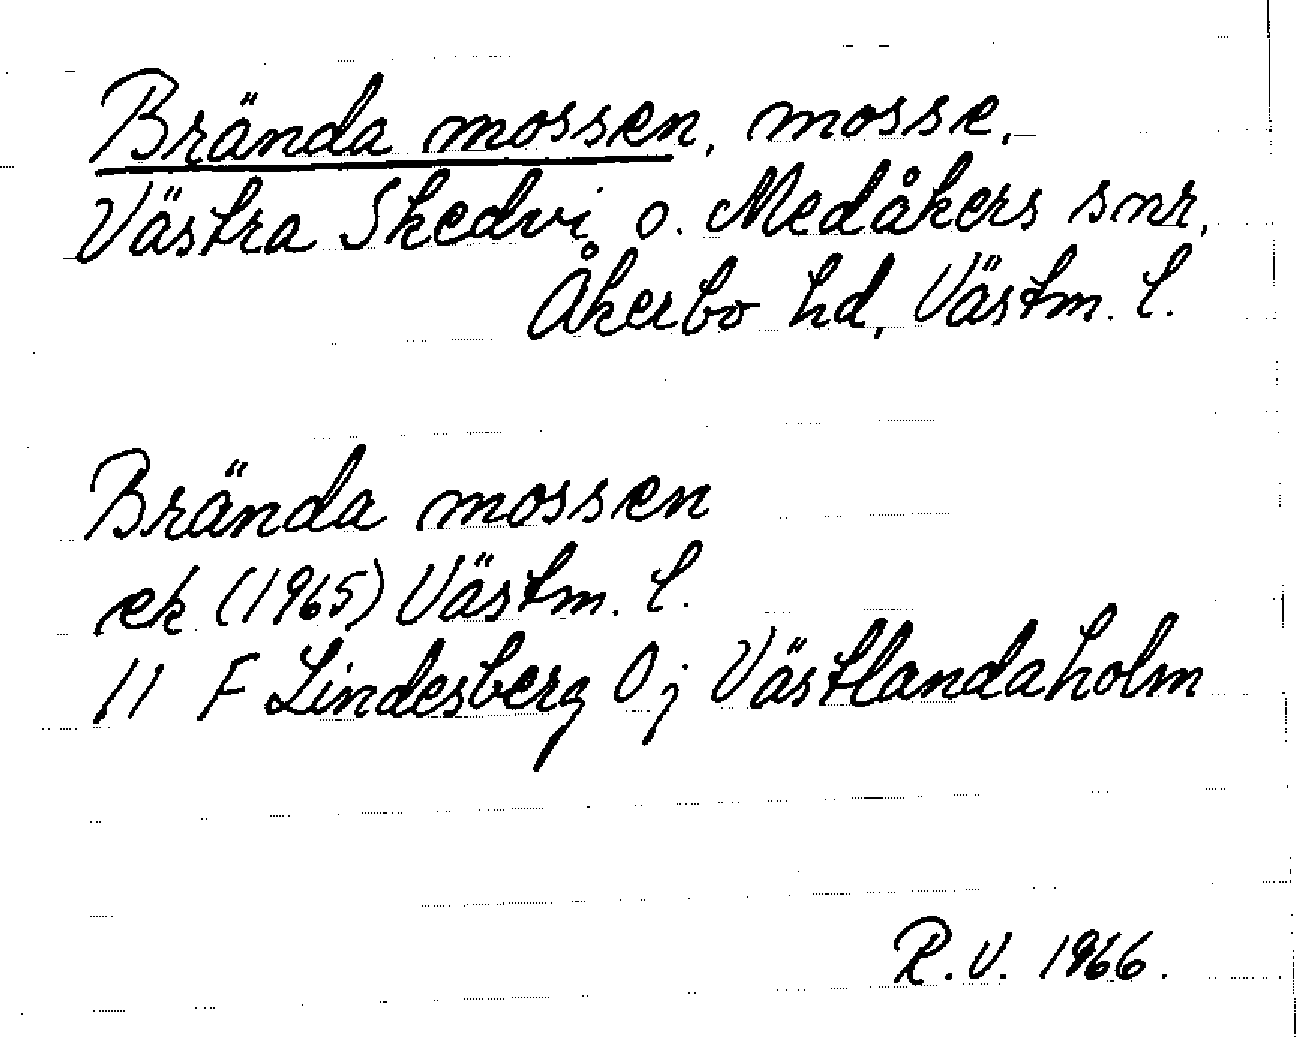 Brända mossen, mosse,
Västra Skedvi o. Medåkers snr,
Åkerbo hd, Västm. l.
Brända mossen
ek (1965) Västm. l.
11 F Lindesberg Oj Västlandaholm
R.V. 1966.